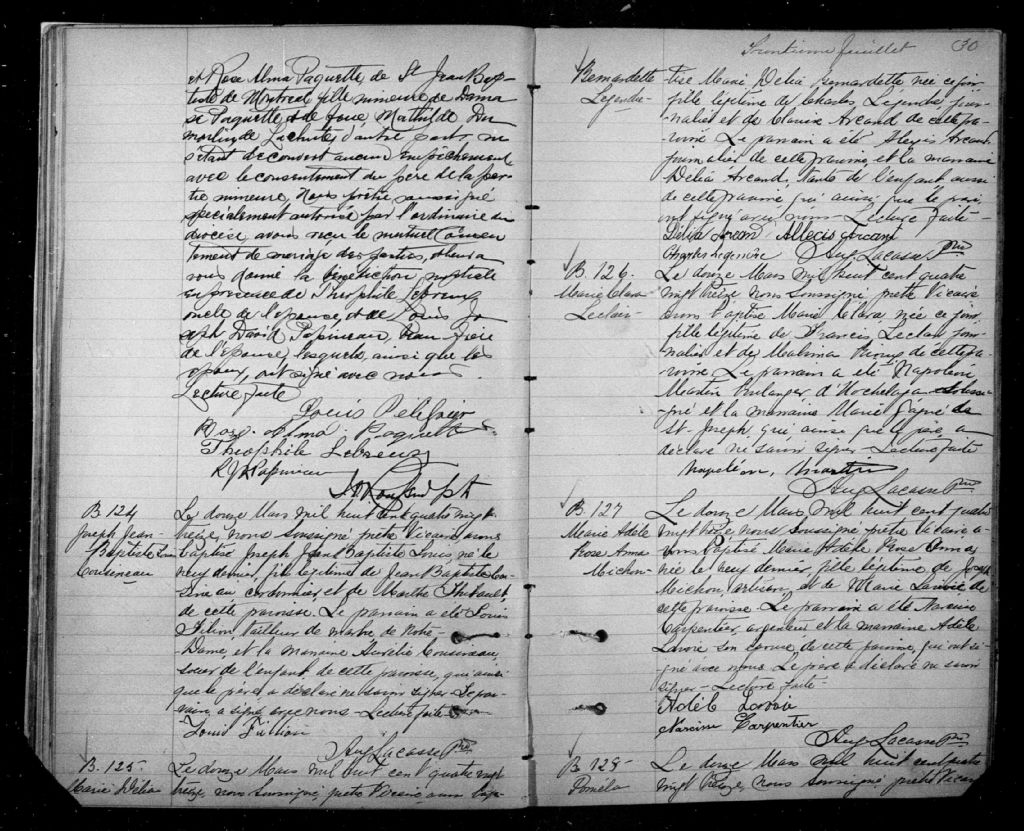 et Rose Alma Paquette, de St Jean Bap-
tiste de Montreal fille mineure de Dama
se Paquette, et de feue Mathilde Du
moulin de Lachute, d'autre part, ne
s'étant découvert aucun empêchement
avec le consentement du père de la par
tie mineure, Nous prêtre soussigné
spécialement autorisé par l'ordinaire du
diocèse, avons reçu le mutuel consen
tement de mariage des parties, et leur a
vons donné la bénédiction nuptiale
en présence de Théophile Lebreux
oncle de l'épouse, et de Louis Jo
seph David Papineau, beau-frère
de l'épouse, lesquels, ainsi que les
époux, ont signé avec nous.
Lecture faite
Louis
Rose Alma Paquette
Theophile Lebreux
Papineau
B 124
Joseph Jean-
Baptiste Louis
Cousineau
Le douze Mars mil huit cent quatre vingt
treize, nous soussigné prêtre Vicaire avons
baptisé Joseph Jean Baptiste Louis, né le
neuf dernier, fils légitime de Jean Baptiste Cou-
sineau cordonnier et de Marthe Thibault
de cette paroisse. Le parrain a été Louis
Filion, tailleur de marbre de Notre-
Dame, et la marraine Aurélie Cousineau,
sœur de l'enfant, de cette paroisse, qui ainsi
que le père a déclaré ne savoir signer. Le par-
rain a signé avec nous - Lecture faite -
Louis Fillion
Aug Lacasse Ptre
B. 125-
Marie Délia
Le douze Mars mil huit cent quatre vingt
treize, nous soussigné, prêtre Vicaire, avons bap-
feuillet 30
Bernardette
Legendre-
tisé Marie Délia Bernardette, née ce jour
fille légitime de Charles Legendre jour-
nalier et de Arcand de cette pa-
roisse. Le parrain a été Alexis Arcand,
journalier de cette paroisse, et la marraine
Délia Arcand, tante de l'enfant, aussi
de cette paroisse qui ainsi que le père,
ont signé avec nous - Lecture faite -
Délia Arcand Allecis Arcant
Charles Legendre Aug Lacasse Ptre
B. 126.
Marie Clara
Leclair-
Le douze Mars mil huit cent quatre
vingt treize nous soussigné prêtre Vicaire
avons baptisé Marie Clara, née ce jour,
fille légitime de Francis Leclair jour-
nalier et de de cette pa-
roisse. Le parrain a été Napoléon
Martin boulanger d'Hochelaga
et la marraine Marie Gagné de
St-Joseph, qui ainsi que le père, a
déclaré ne savoir signer - Lecture faite
Napoléon, Martin
Aug Lacasse Ptre
B. 127
Marie Adèle
Rose Anna
Michon-
Le douze Mars mil huit cent quatre
vingt treize, nous soussigné prêtre vicaire a-
vons Baptisé Marie Adèle Rose Anna
née le neuf dernier, fille légitime de Joseph
Michon, artisan, et de Marie Lavoie de
cette paroisse. Le parrain a été Narcisse
Carpentier, et la marraine Adèle
Lavoie son épouse de cette paroisse, qui ont si-
gné avec nous. Le père a déclaré ne savoir
signer - Lecture faite -
Adèle Lavoie
Narcisse Carpentier
Aug Lacasse Ptre
B. 128-
Poméla
Le douze Mars mil huit cent quatre
vingt treize, nous soussigné, prêtre Vicaire